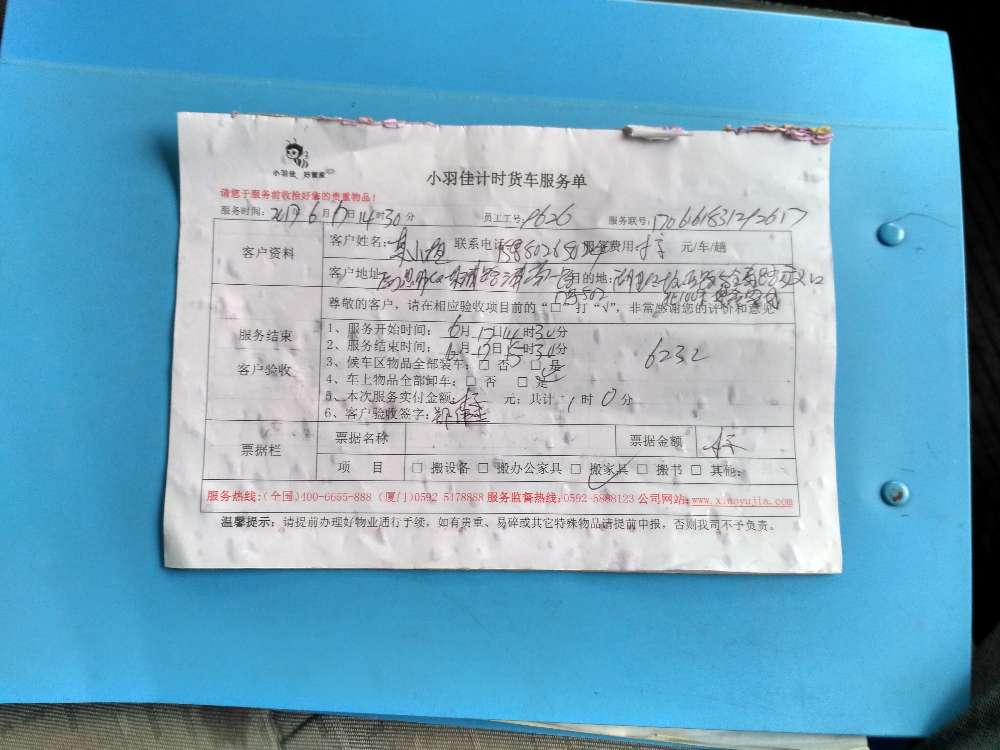 小羽佳 好管家
小羽佳计时货车服务单
请您于服务前收拾好您的贵重物品!
服务时间:2017年6月17日14时30分 员工工号: 9626 服务联号:
客户资料 客户姓名: 联系电话: 服务费用: 元/车/趟
客户地址: 目的地:
尊敬的客户,请在相应验收项目前的“□”打“√”,非常感谢您的评价和意见
服务结束
客户验收
1、服务开始时间: 6月17日14时30分
2、服务结束时间: 6月17日15时30分
6232
3、候车区物品全部装车:□ 否 □ 是
4、车上物品全部卸车:□ 否 □ 是
5、本次服务实付金额: 元;共计 1时0分
6、客户验收签字:
票据栏 票据名称 票据金额
项 目 □ 搬设备 □ 搬办公家具 □ 搬家具 □ 搬书 □ 其他:
服务热线:(全国)400-6655-888 (厦门)0592 5178888 服务监督热线:0592-5888123 公司网站:www.xiaoyujia.com
温馨提示:请提前办理好物业通行手续,如有贵重、易碎或其它特殊物品请提前申报,否则我司不予负责。